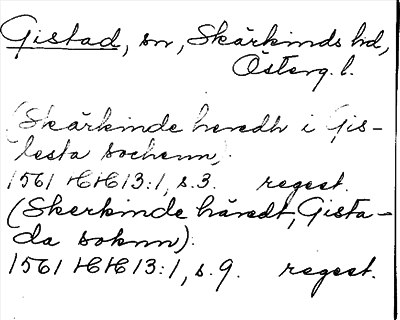 Gistad, sn, Skärkinds hd,
Österg. l.
(Skärkinde heredh i Gis-
lesta sochenn).
1561 HH 13:1, s.3. regest.
(Skerkinde häredt, Gista-
da soknn).
1561 HH 13:1, s.9. regest.